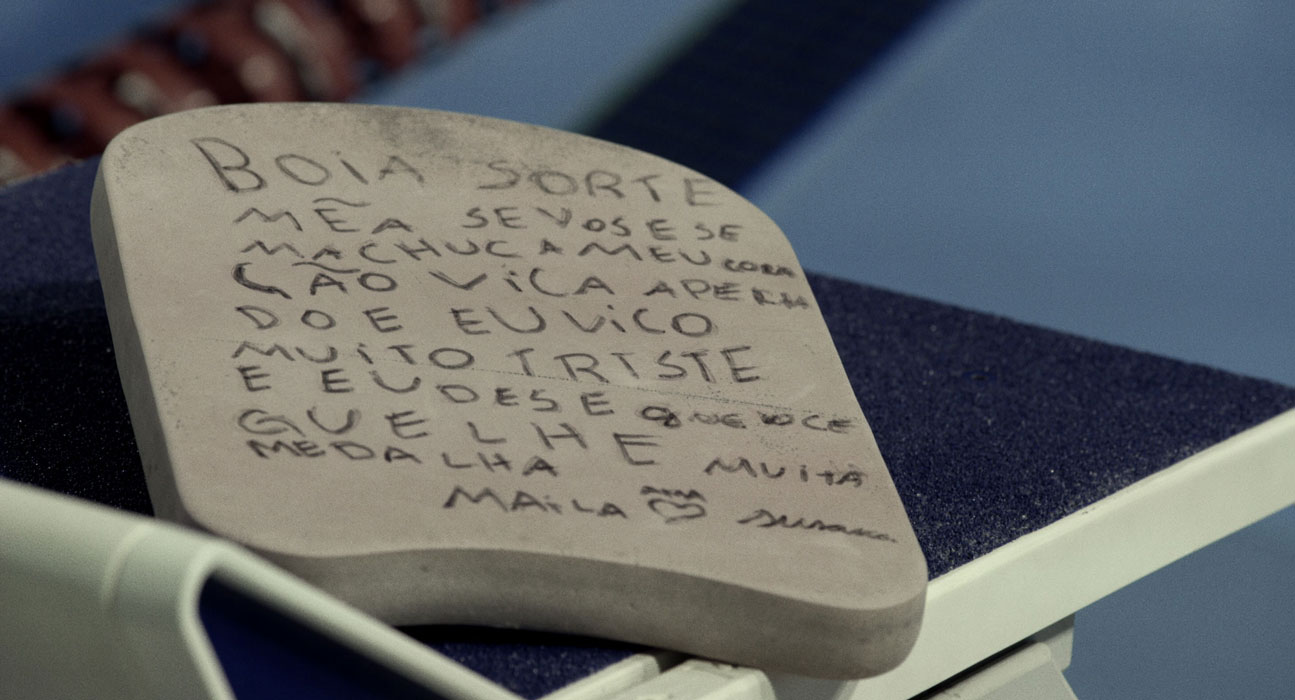 BOiA SORTE
MÊA SEVOSE SE
MACHUCA MEU CORA
ÇÃO ViCA APERtA
DO E EU ViCO
MUiTO TRISTE
E EU DESE QUE VOCE
GUE LHE
MEDALHA MUitA
MAiLA AMA Susana